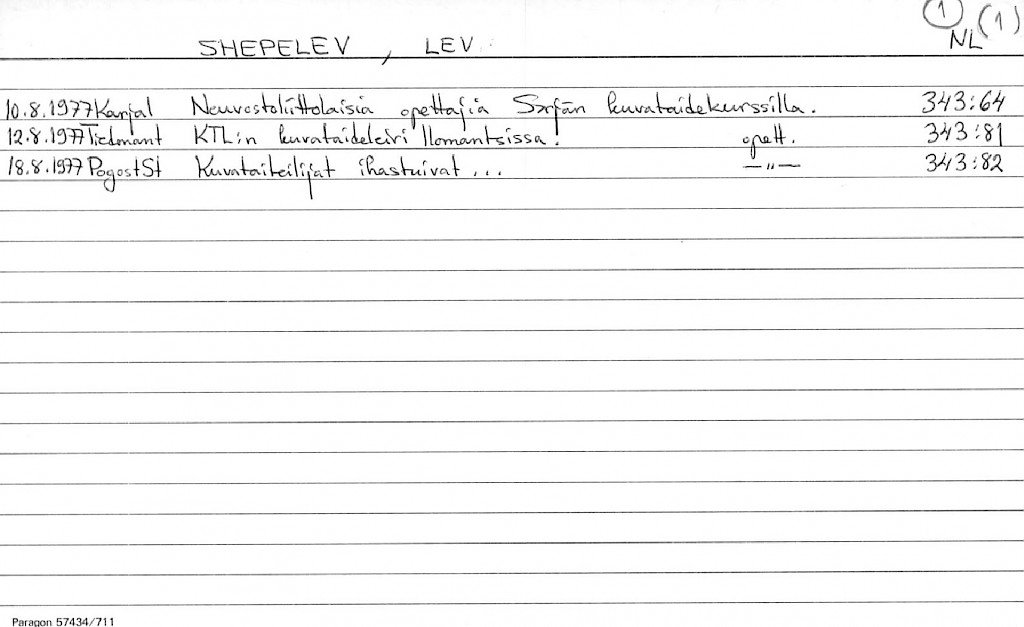 1 (1)
SHEPELEV, LEV NL
10.8.1977 Karjal Neuvostoliittolaisia opettajia Särjän kuvataidekurssilla. 343:64
12.8.1977 Tiedonant KTL:n kuvataideleiri Ilomantsissa. opett. 343:81
18.8.1977 PogostSt Kuvataiteilijat ihastuivat ... —"— 343:82
Paragon 57434/711